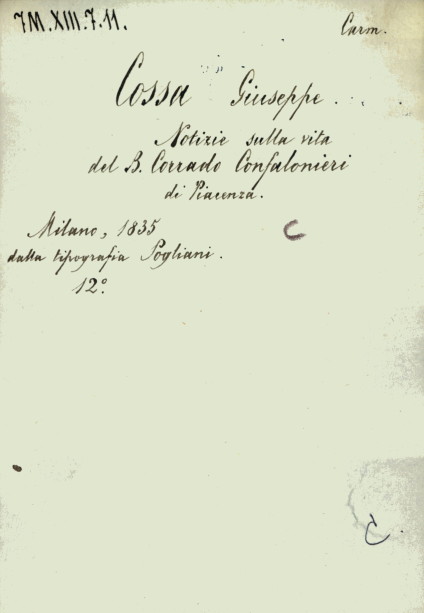 7M.XIII.7.11.
Carm.
Cossa Giuseppe.
Notizie sulla vita
del B. Corrado Confalonieri
di Piacenza.
Milano, 1835
dalla tipografia Pogliani.
12º.
C